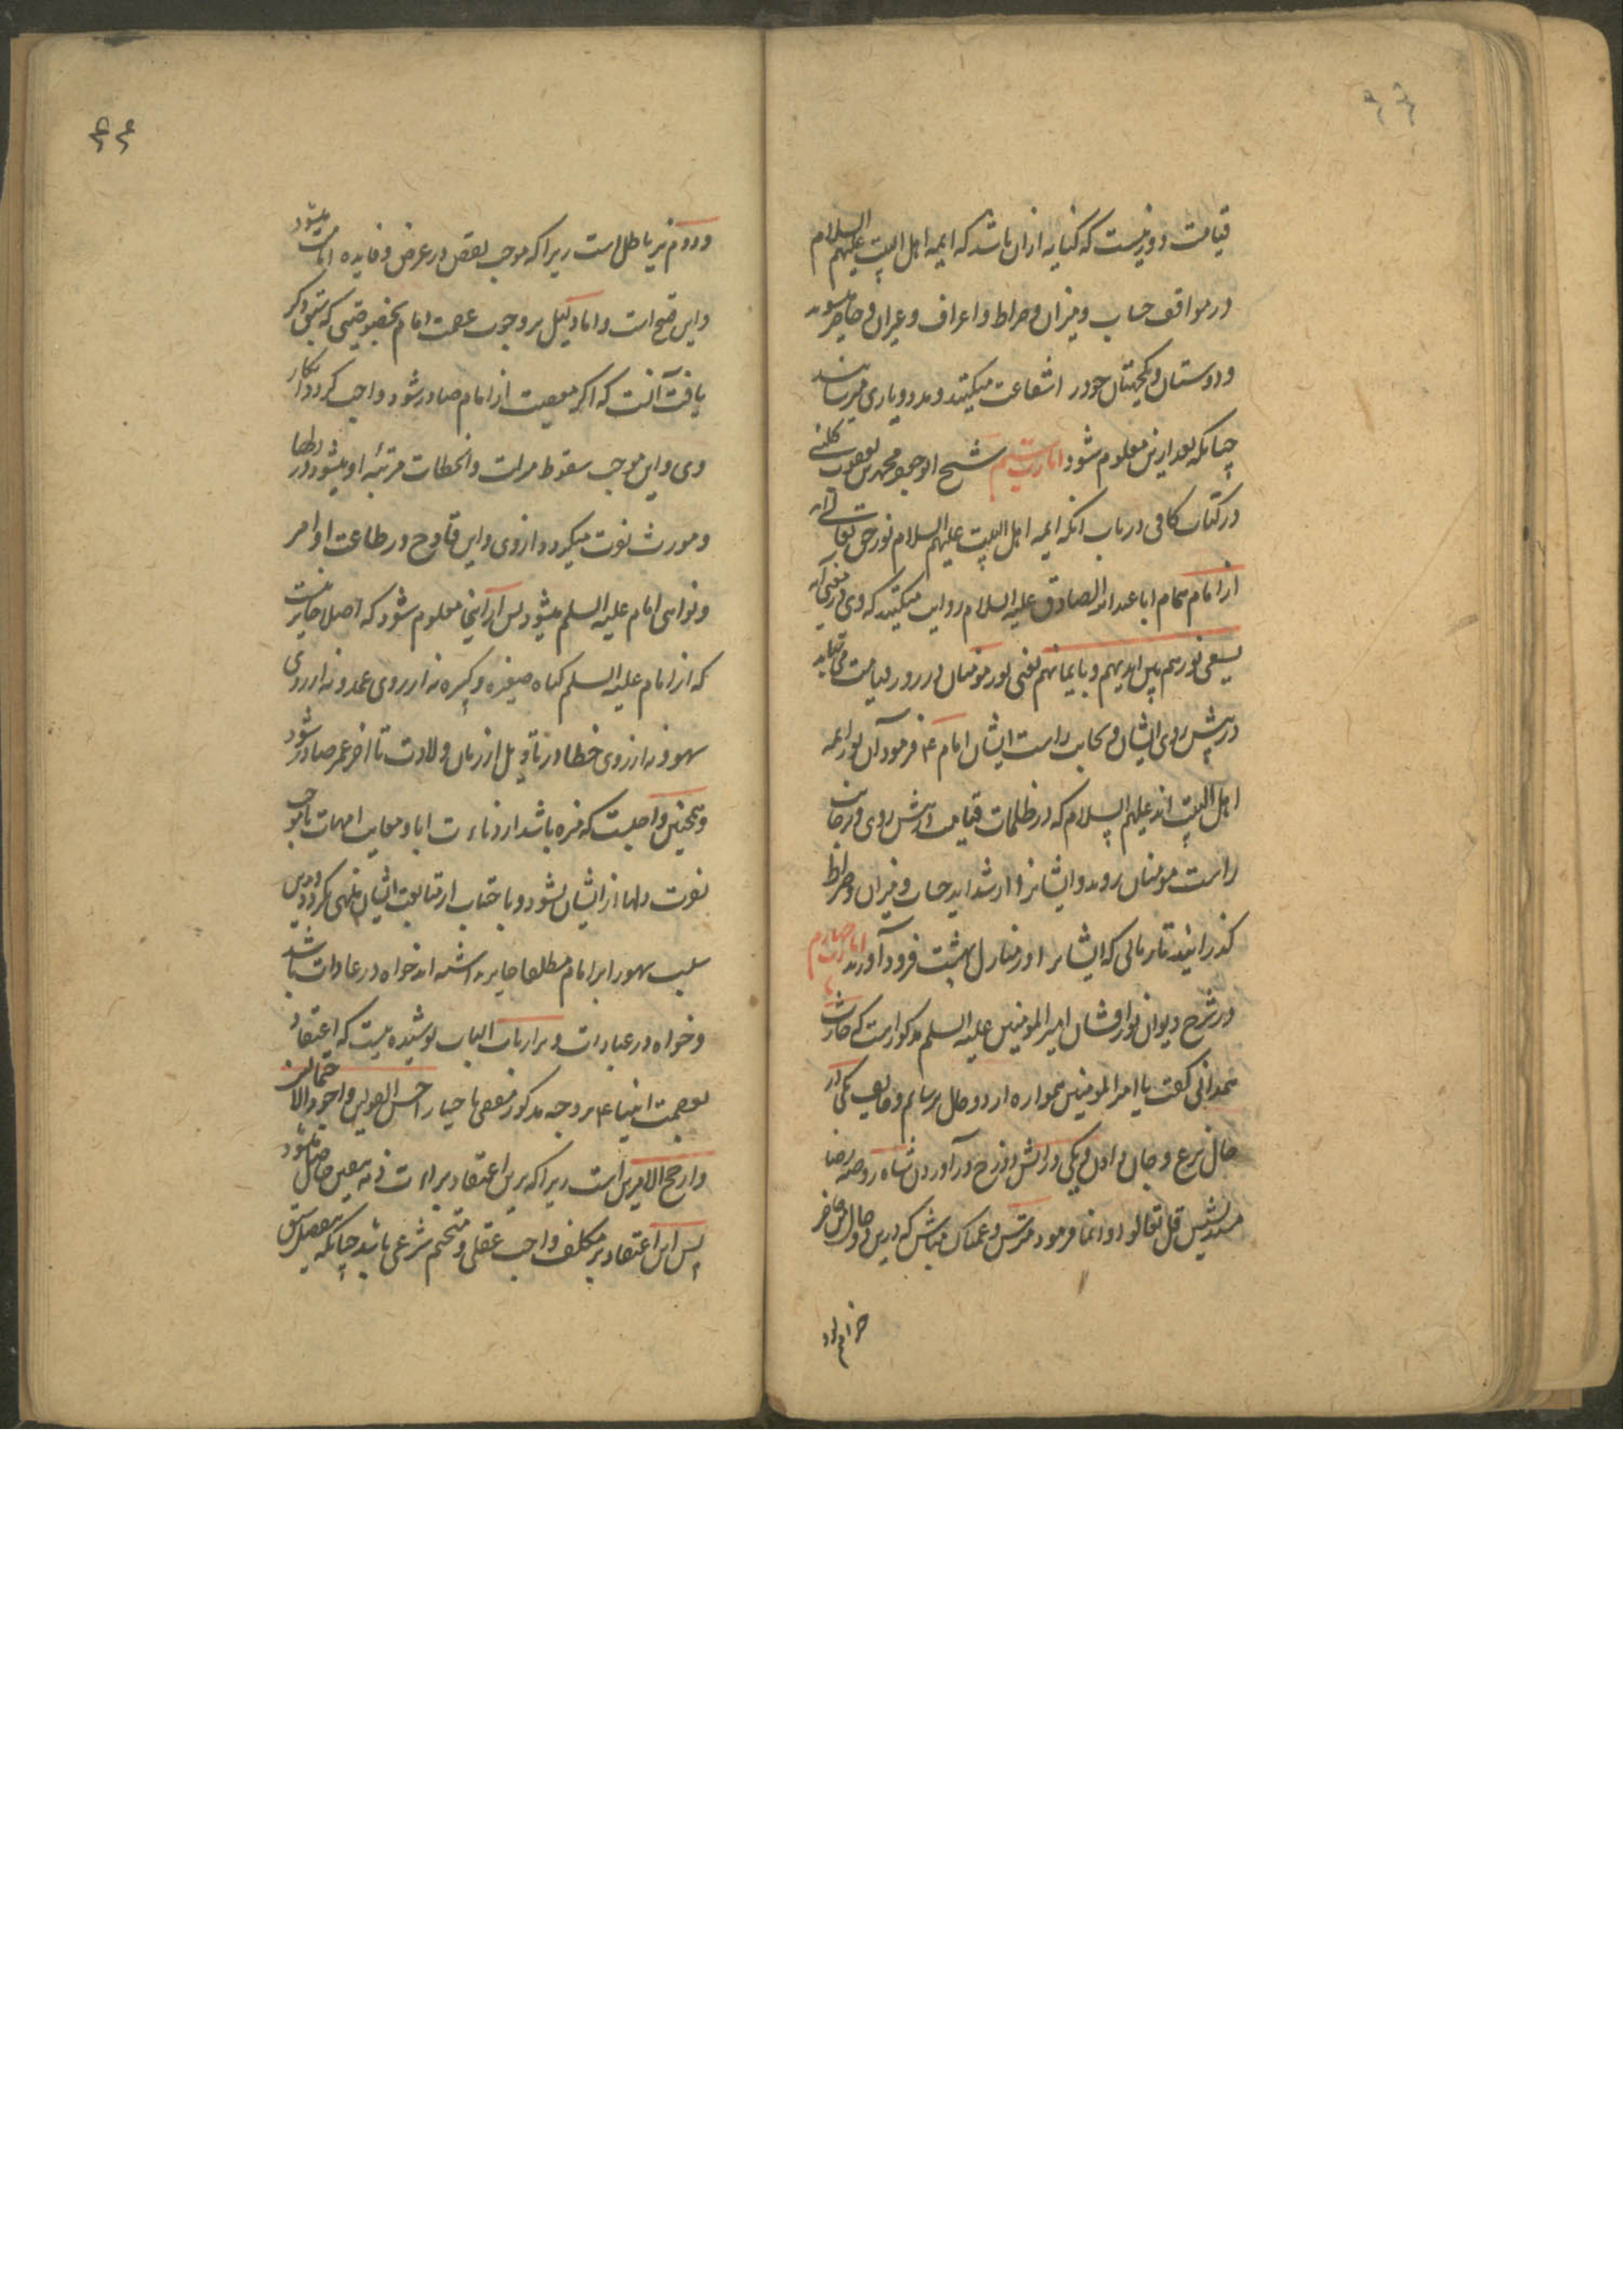 قیامت دور نیست که کنایه ازان باشد که ایمه اهل البیت علیهم السلام
در مواقف حساب و میزان و صراط و اعراف و غیران حاضر میشوند
و دوستان و یکجهتان خود را شفاعت میکنند و مدد و یاری میرسانند
چنانکه بعد ازین معلوم شود امارت سیم شیخ ابو جعفر محمد بن یعقوب کلینی
در کتاب کافی در باب انکه ایمه اهل البیت علیهم السلام نور حق تعالی اند
از امام همام ابا عبد الله الصادق علیه السلام روایت میکند که وی در معنی آیه
یسعی نورهم بین ایدیهم و بایمانهم یعنی نور مومنان در روز قیامت می شتابد
در پیش روی ایشان و بجانب راست ایشان امام ع فرمود آن نور ایمه
اهل البیت اند علیهم السلام که در ظلمات قیامت در پیش روی و در جانب
راست مومنان روند و ایشانرا از شداید حساب و میزان و صراط
کذرانند تا زمانی که ایشانرا در منازل بهشت فرود آورند امارت چهارم
در شرح دیوان نورافشان امیر المومنین علیه السلم مذکور است که حارث
همدانی کفت یا امیر المومنین همواره از دو حال ترسانم و خایف یکی در
حال نزع و جان دادن و یکی در آتش دوزخ درآوردن شاه روضه رضا
مسند نشین قل تعالوا و انما فرمود مترس و غمناک مباش که درین دو حال من حاضر
خواهم بود
۶۶
و دوم نیز باطل است زیرا که موجب نقص در غرض و فایده امامت میشود
و این قبیح است و اما دلیل بر وجوب عصمت امام بخصوصیتی که سبق ذکر
یافت آنست که اکر معصیت از امام صادر شود واجب کردد انکار
وی و این موجب سقوط منزلت و انحطاط مرتبه او میشود در دلها
و مورث نفرت میکردد از وی و این قادح در طاعت اوامر
و نواهی امام علیه السلم میشود پس ازاینجا معلوم شود که اصلا جایز نیست
که از امام علیه السلم کناه صغیره و کبیره نه از روی عمد و نه از روی
سهو و نه از روی خطا در تاویل از زمان ولادت تا اخر عمر صادر شود
و همچنین واجبست که منزه باشد از دناءت ابا و معایب امهات تا موجب
نفرت دلها از ایشان نشود و باجتناب از متابعت ایشان منتهی نکردد و درین
سلب سهو را بر امام مطلقا جایز نداشته اند خواه در عادات باشد
و خواه در عبادات و بر ارباب الباب پوشیده نیست که اعتقاد
بعصمت انبیا ع بر وجه مذکور مفضی باختیار احسن القولین و اجود الاحتمالین
و ارجح الامرین است زیرا که برین اعتقاد براءت ذمه بیقین حاصل میشود
پس این اعتقاد بر مکلف واجب عقلی و متحتم شرعی باشد چنانکه بتفصیل سبق